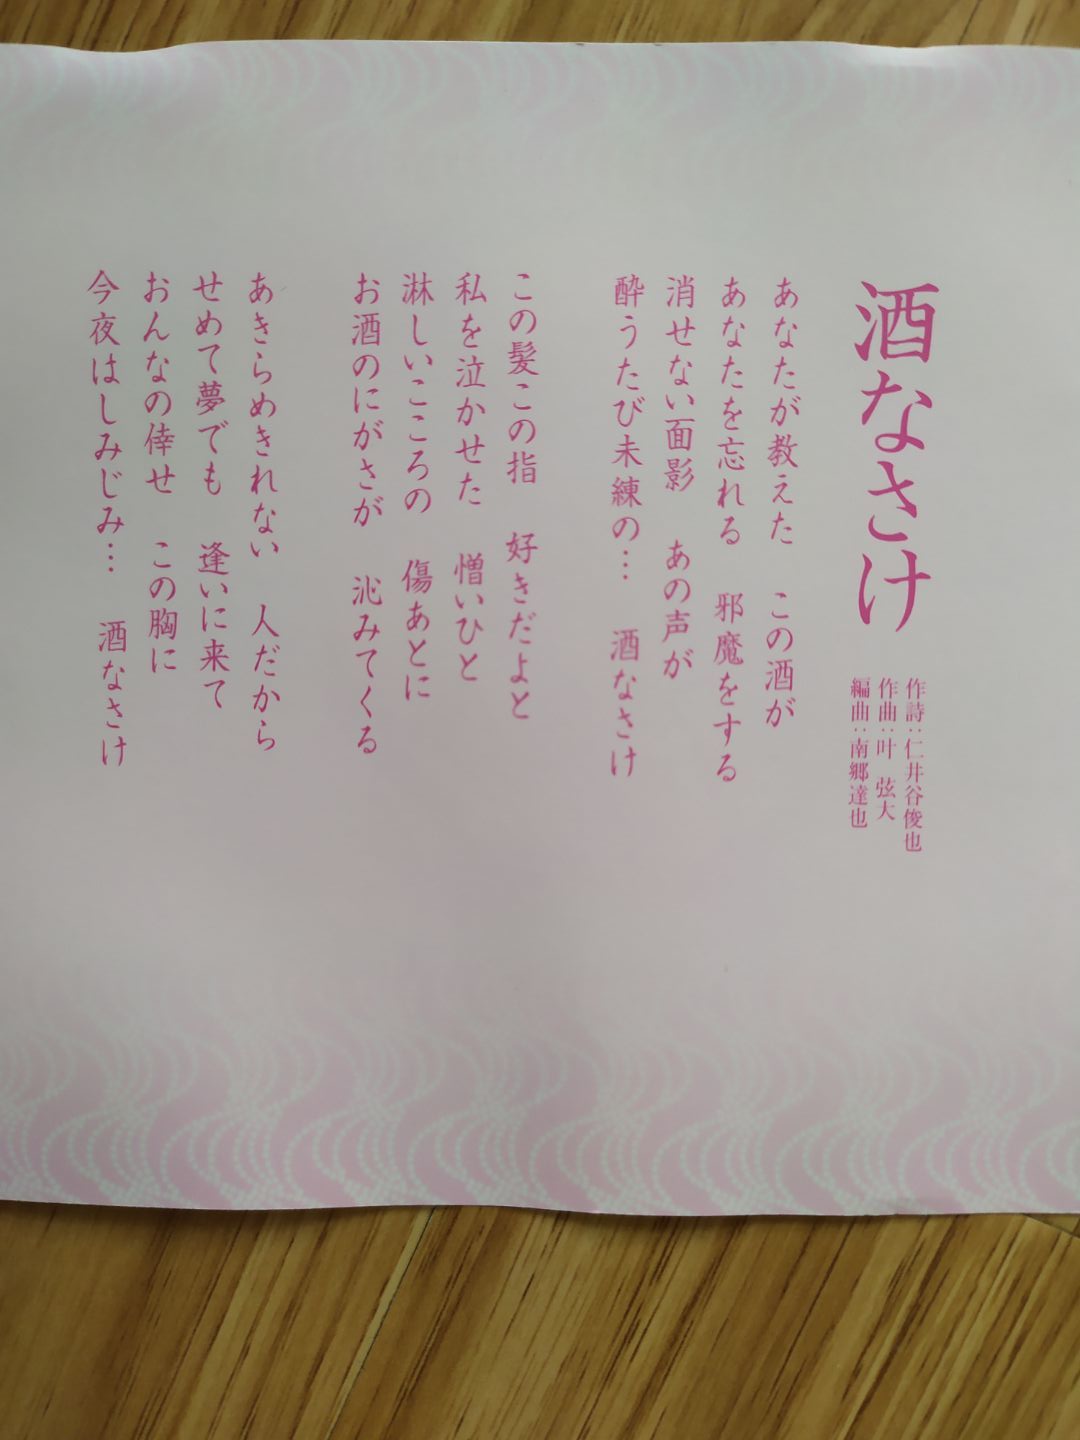 酒なさけ
作詩：仁井谷俊也
作曲：叶　弦大
編曲：南郷達也
あなたが教えた　この酒が
あなたを忘れる　邪魔をする
消せない面影　あの声が
酔うたび未練の…　酒なさけ
この髪この指　好きだよと
私を泣かせた　憎いひと
淋しいこころの　傷あとに
お酒のにがさが　沁みてくる
あきらめきれない　人だから
せめて夢でも　逢いに来て
おんなの倖せ　この胸に
今夜はしみじみ…　酒なさけ